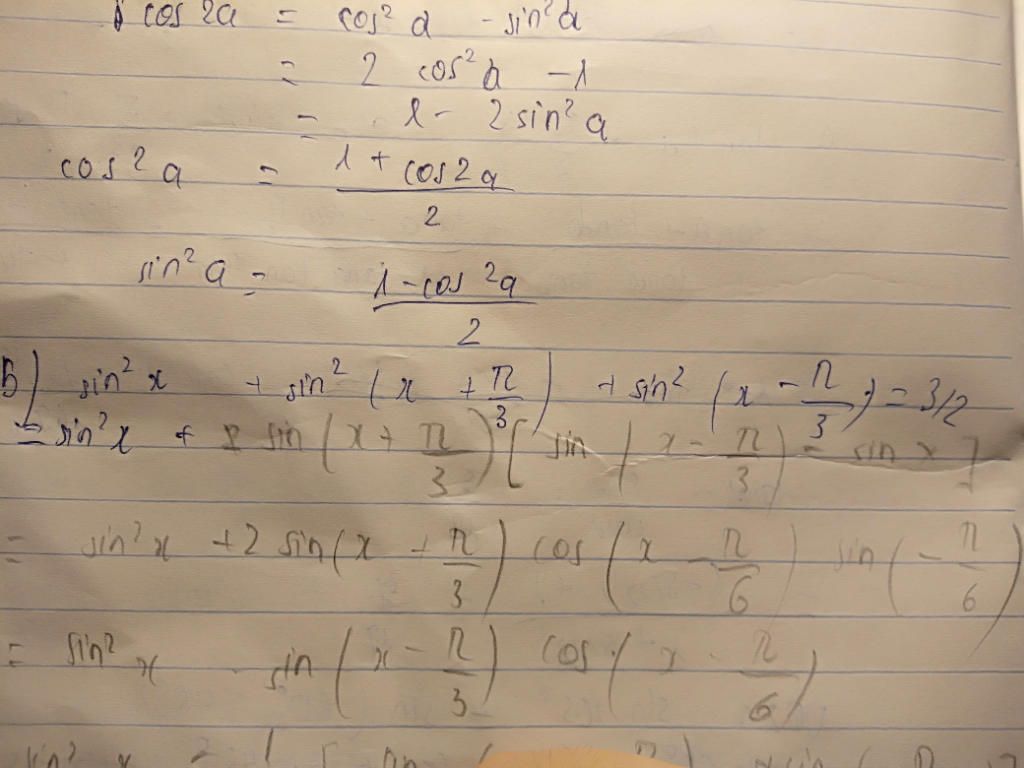 cos 2a = cos² a - sin² a
= 2 cos² a - 1
= 1 - 2 sin² a
cos² a = (1 + cos 2a)/2
sin² a = (1 - cos 2a)/2
B) sin² x + sin² (x + π/3) + sin² (x - π/3) = 3/2
= sin² x + sin (x + π/3) [sin (x - π/3) - sin x]
= sin² x + 2 sin (x + π/3) cos (x - π/6) sin (-π/6)
= sin² x - sin (x - π/3) cos (x - π/6)
sin² x